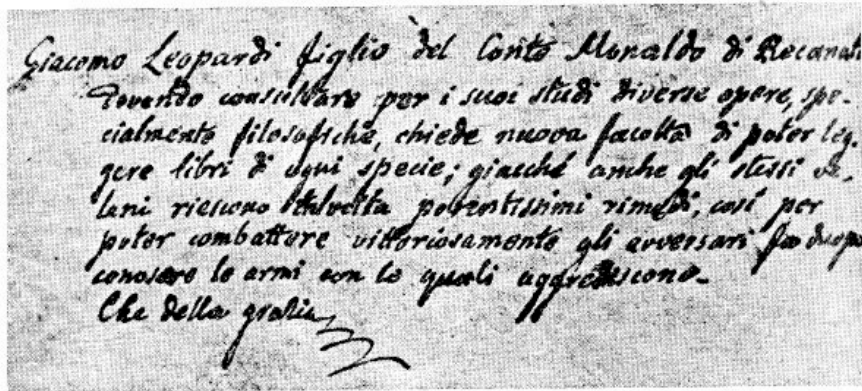 Giacomo Leopardi figlio del Conte Monaldo di Recanati
dovendo consultare per i suoi studi diverse opere, spe-
cialmente filosofiche, chiede nuova facoltà di poter leg-
gere libri di ogni specie; giacché anche gli stessi ve-
leni riescono talvolta potentissimi rimedi, così per
poter combattere vittoriosamente gli avversari fa duopo
conoscere le armi con le quali aggrediscono.
Che della grazia